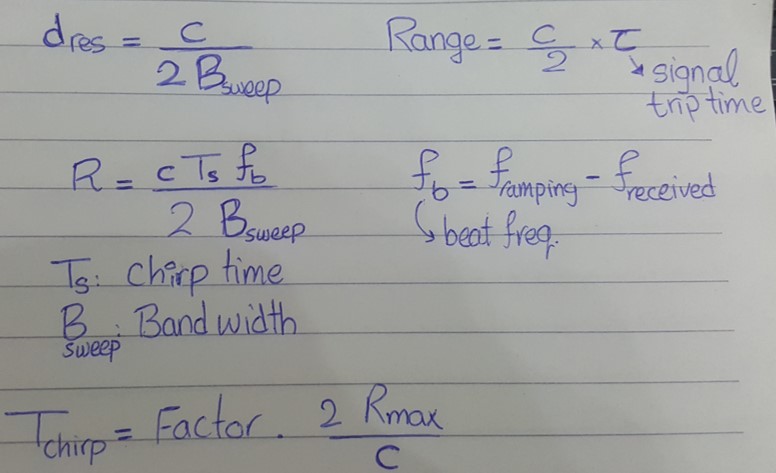 d_res = c / 2 B_sweep
Range = c / 2 × τ
signal
trip time
R = c T_s f_b / 2 B_sweep
f_b = f_ramping - f_received
beat freq.
T_s: Chirp time
B_sweep: Bandwidth
T_chirp = Factor . 2 R_max / c